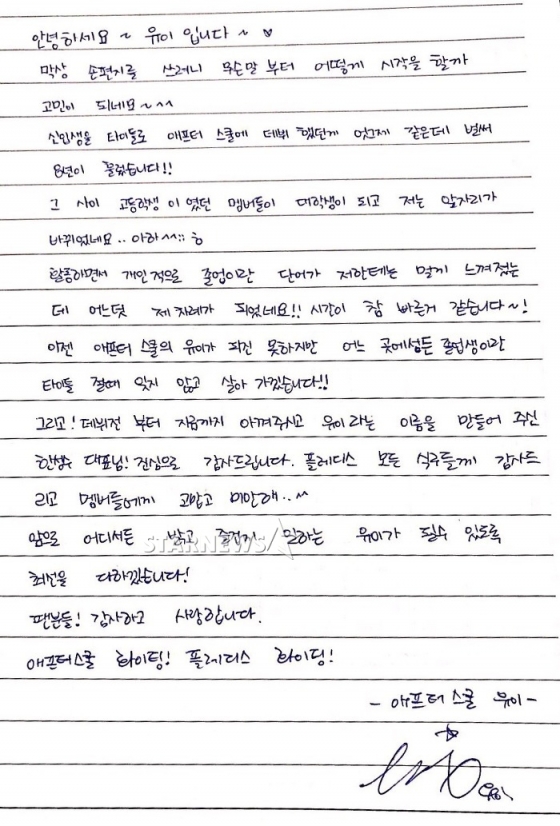 안녕하세요~ 유이 입니다~ ♥
막상 손편지를 쓰려니 무슨말 부터 어떻게 시작을 할까
고민이 되네요~^^
신인생을 타이틀로 애프터 스쿨에 데뷔 했던게 엊그제 같은데 벌써
8년이 흘렀습니다!!
그 사이 고등학생 이 였던 멤버들이 대학생이 되고 저는 앞자리가
바뀌었네요.. 아하^^;; ㅎ
활동하면서 개인적으로 졸업이란 단어가 저한테는 멀게 느껴졌는
데 어느덧 제 차례가 되었네요!! 시간이 참 빠른거 같습니다~!
이젠 애프터 스쿨의 유이가 되진 못하지만 어느 곳에성든 졸업생이란
타이틀 절때 잊지 않고 살아 가겠습니다!!
그리고! 데뷔전 부터 지금까지 아껴주시고 유이 라는 이름을 만들어 주신
한성수 대표님! 진심으로 감사드립니다. 플레디스 모든 식구들께 감사드
리고 멤버들에게 고맙고 미안해..^^
앞으로 어디서든 밝고 즐겁게 일하는 유이가 될수 있도록
최선을 다하겠습니다!
팬분들! 감사하고 사랑합니다.
애프터스쿨 화이팅! 플레디스 화이팅!
- 애프터 스쿨 유이 -
STARNEWS